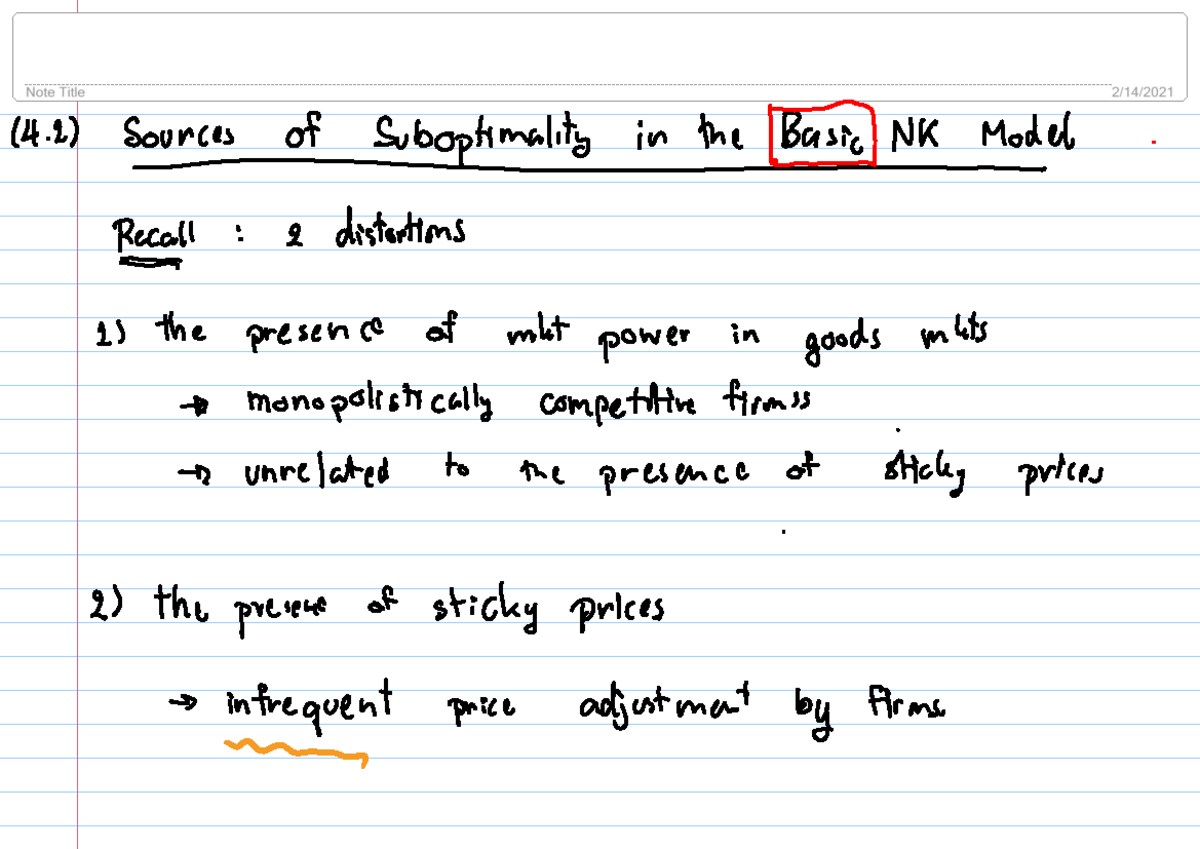 Note Title
2/14/2021
(4.2) Sources of Suboptimality in the Basic NK Model
Recall : 2 distortions
1) the presence of mkt power in goods mkts
→ monopolistically competitive firms
→ unrelated to the presence of sticky prices
2) the presence of sticky prices
→ infrequent price adjustment by firms